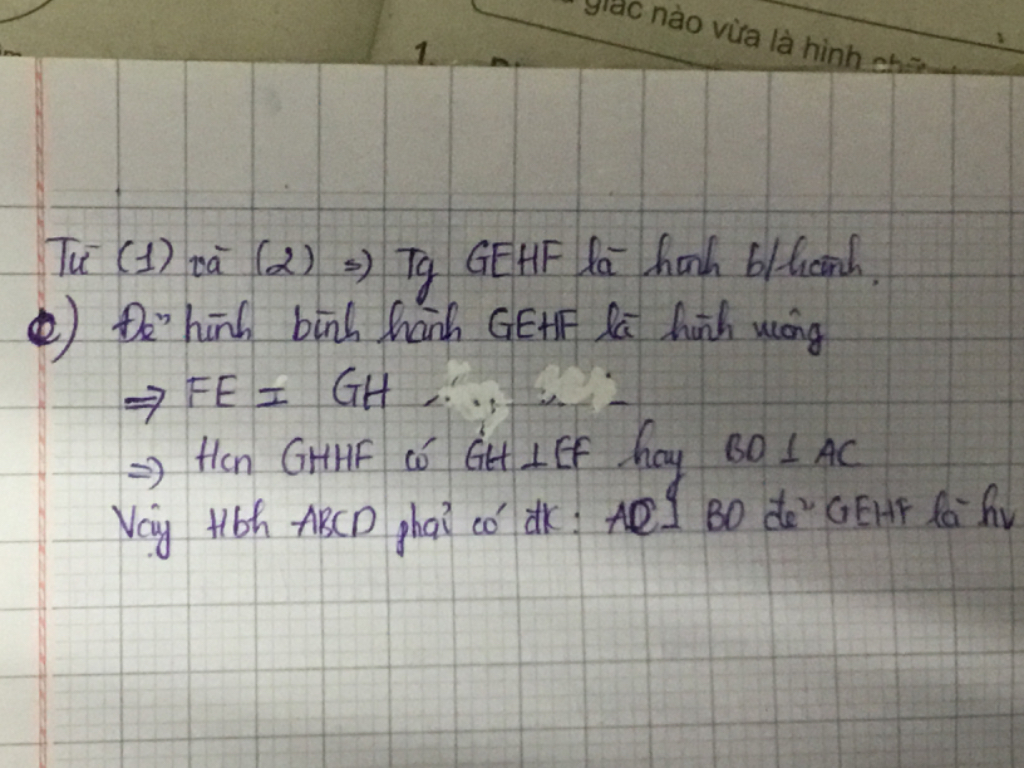 giác nào vừa là hình chữ
1.
Từ (1) và (2) => Tg GEHF là hình b/hành.
c) Để hình bình hành GEHF là hình vuông
=> FE = GH
=> Hcn GHHF có GH ⊥ EF hay BD ⊥ AC
Vậy Hbh ABCD phải có đk: AC ⊥ BD để GEHF là hv